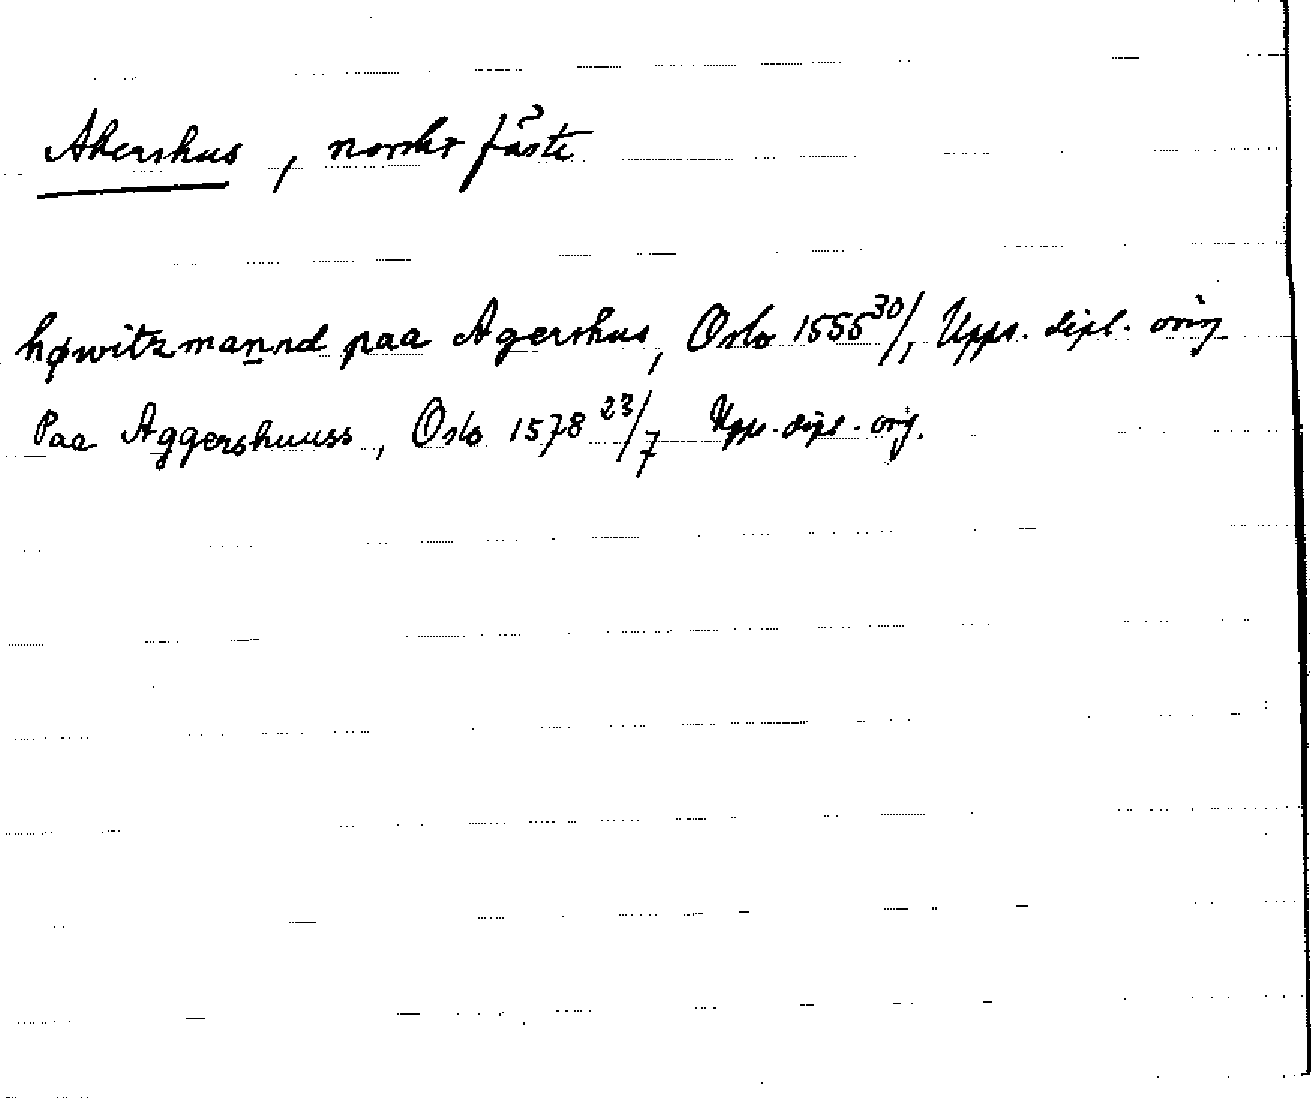 Akershus, norskt fäste
høwitzmannd paa Agershus, Oslo 1555 30/1, Upps. dipl. orig
Paa Aggershuuss, Oslo 1578 23/7 Upps. dipl. orig.